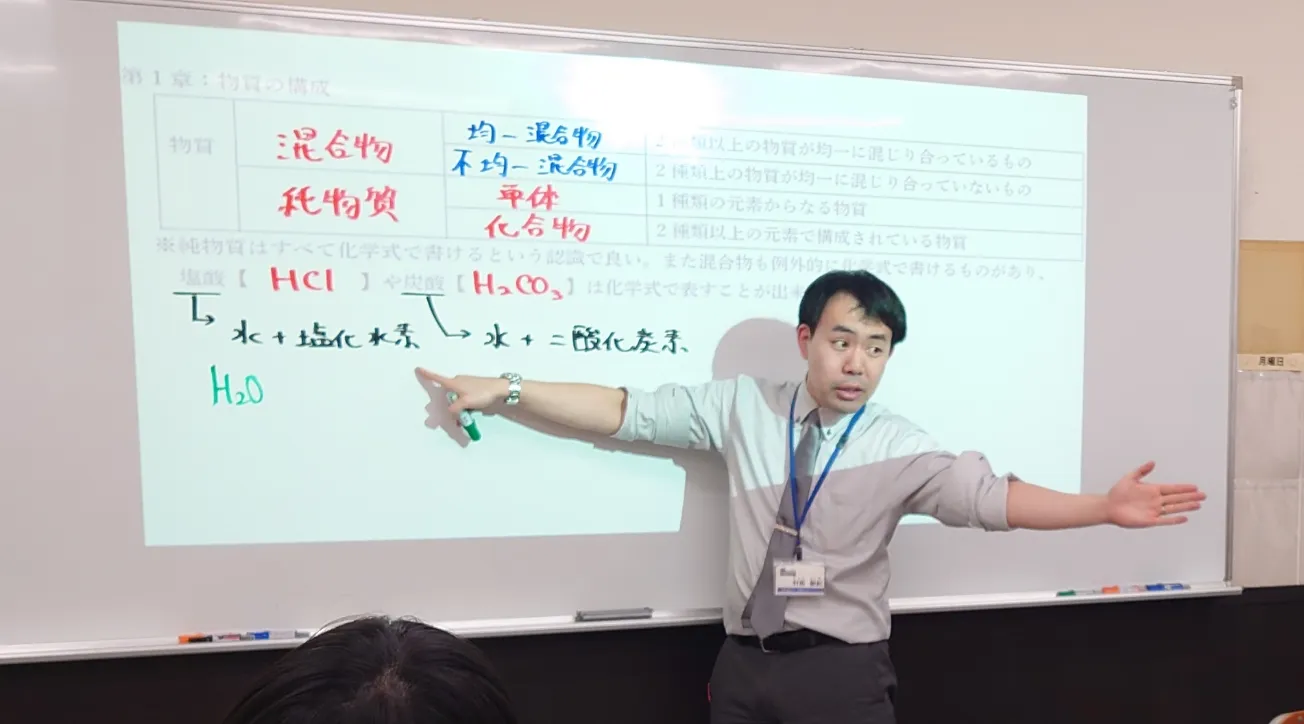 第1章：物質の構成
物質
混合物
均一混合物
2種類以上の物質が均一に混じり合っているもの
不均一混合物
2種類上の物質が均一に混じり合っていないもの
純物質
単体
1種類の元素からなる物質
化合物
2種類以上の元素で構成されている物質
※純物質はすべて化学式で書けるという認識で良い。また混合物も例外的に化学式で書けるものがあり、
塩酸【 HCl 】や炭酸【H₂CO₃】は化学式で表すことが出来
水+塩化水素 水+二酸化炭素
H₂O
月曜日